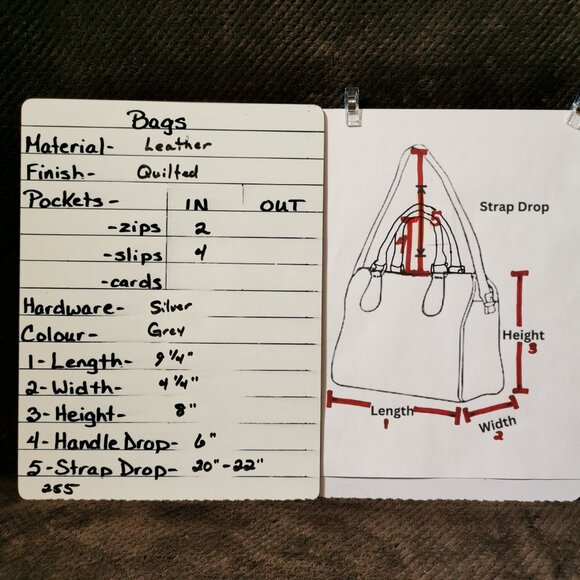 Bags
Material- Leather
Finish- Quilted
Pockets- IN OUT
-zips 2
-slips 4
-cards
Hardware- Silver
Colour- Grey
1-Length- 9 1/4"
2-Width- 4 1/4"
3-Height- 8"
4-Handle Drop- 6"
5-Strap Drop- 20"-22"
265
Strap Drop
5
4
Height
3
Length
1
Width
2